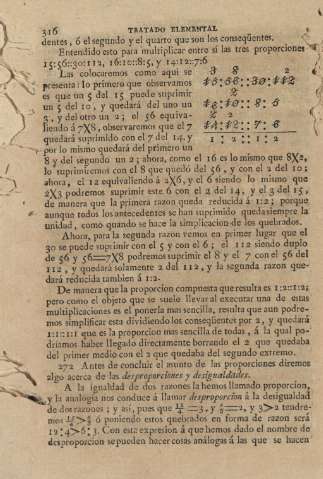 316 TRATADO ELEMENTAL
dentes, ó el segundo y el quarto que son los conseqüentes.
Entendido esto para multiplicar entre sí las tres proporciones
15:56::30:112, 16:10::8:5, y 14:12::7:6
Las colocaremos como aqui se
presenta: lo primero que observamos
es que un 5 del 15 puede suprimir
un 5 del 10, y quedará del uno un
3, y del otro un 2; el 56 equiva-
liendo á 7X8, observaremos que el 7
quedará suprimido con el 7 del 14, y
por lo mismo quedará del primero un
3 8 2
15:56::30:112
2
16:10::8:5
2 2
14:12::7:6
1 : 2 :: 1 : 2
8 y del segundo un 2; ahora, como el 16 es lo mismo que 8X2,
lo suprimiremos con el 8 que quedó del 56, y con el 2 del 10;
ahora, el 12 equivaliendo á 2X6, y el 6 siendo lo mismo que
2X3 podremos suprimir este 6 con el 2 del 14, y el 3 del 15,
de manera que la primera razon queda reducida á 1:2; porque
aunque todos los antecedentes se han suprimido queda siempre la
unidad, como quando se hace la simplificacion de los quebrados.
Ahora, para la segunda razon vemos en primer lugar que el
30 se puede suprimir con el 5 y con el 6; el 112 siendo duplo
de 56 y 56=7X8 podremos suprimir el 8 y el 7 con el 56 del
112, y quedará solamente 2 del 112, y la segunda razon que-
dará reducida tambien á 1:2.
De manera que la proporcion compuesta que resulta es 1:2::1:2;
pero como el objeto que se suele llevar al executar una de estas
multiplicaciones es el ponerla mas sencilla, resulta que aun podre-
mos simplificar esta dividiendo los conseqüentes por 2, y quedará
1:1::1:1 que es la proporcion mas sencilla de todas, á la qual po-
driamos haber llegado directamente borrando el 2 que quedaba
del primer medio con el 2 que quedaba del segundo extremo.
272 Antes de concluir el asunto de las proporciones diremos
algo acerca de las desproporciones y desigualdades.
A la igualdad de dos razones la hemos llamado proporcion,
y la analogía nos conduce á llamar desproporcion á la desigualdad
de dos razones; y así, pues que 12/4=3, y 6/3=2, y 3>2 tendre-
mos 12/4>6/3 ó poniendo estos quebrados en forma de razon será
12:4>6:3. Con esta expresion á que hemos dado el nombre de
desproporcion se pueden hacer cosas análogas á las que se hacen